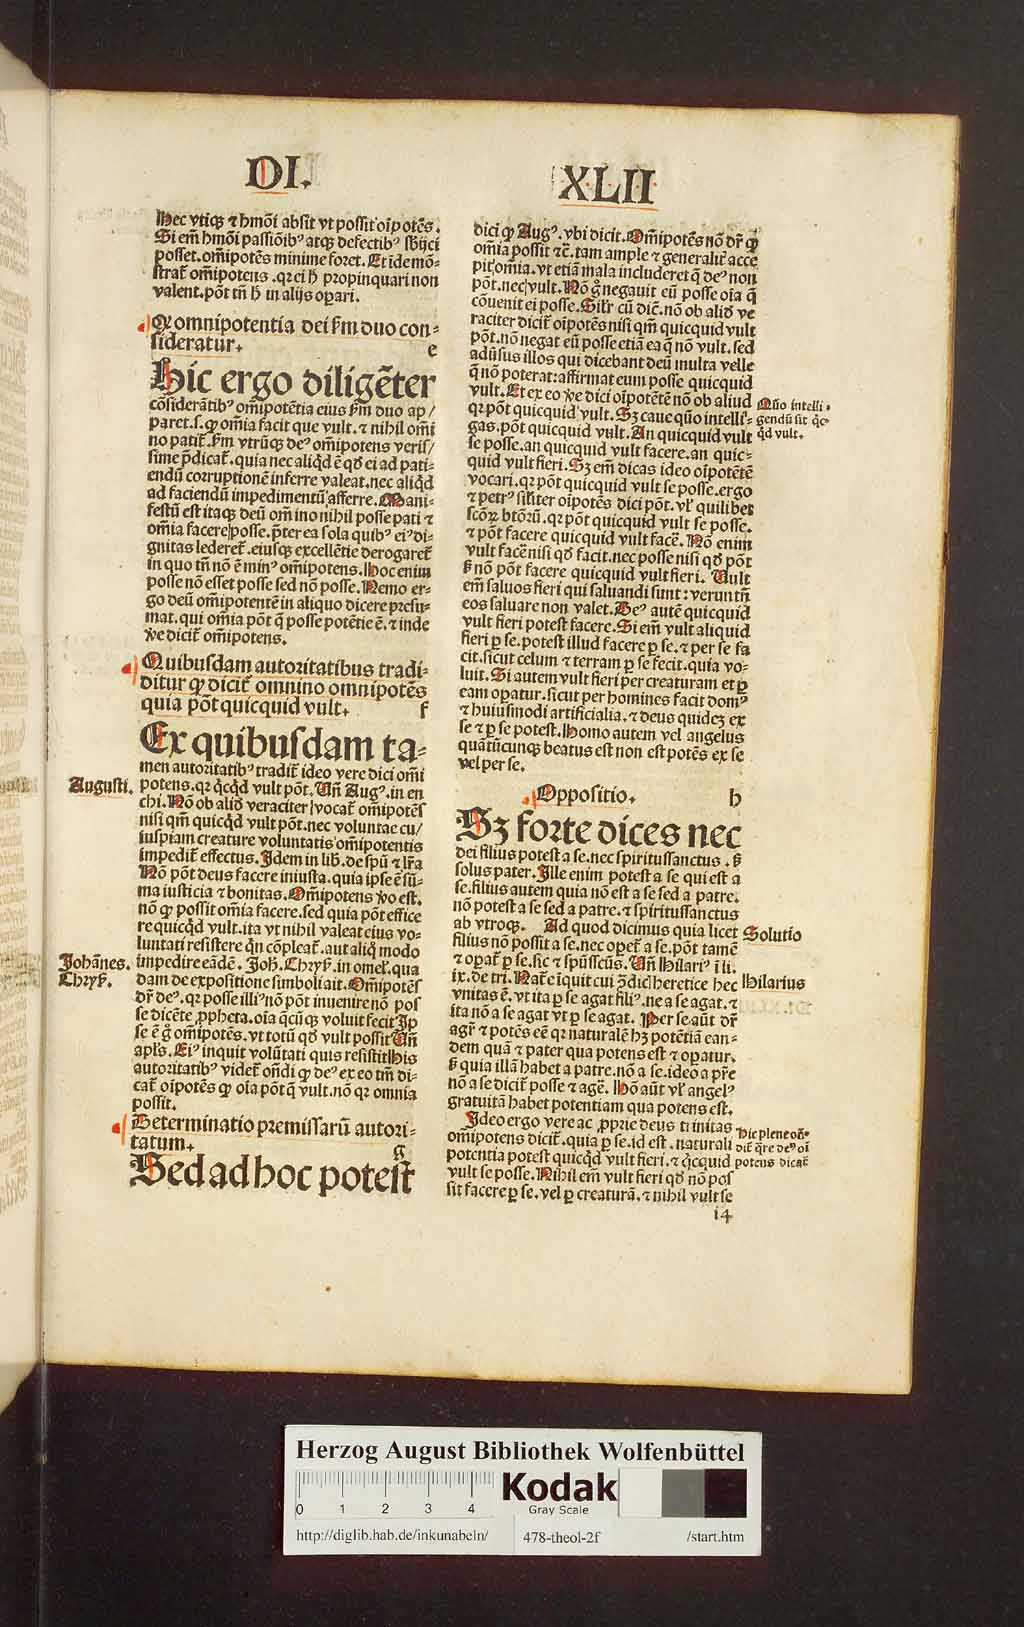 DI.
XLII
Hec vtiqꝫ ⁊ hmōi absit vt possit oīpotēs.
Si em̄ hmōi passiōibꝰ atqꝫ defectibꝰ sb̄ijci
posset. om̄ipotēs minime foret. Et ide mō-
strat᷑ om̄ipotens. qꝛ ei h̄ propinquari non
valent. pōt tn̄ h̄ in alijs oꝑari.
Ꝙ omnipotentia dei ẜm duo con-
sideratur.
e
Hic ergo diligēter
cōsiderātibꝰ om̄ipotētia eius ẜm duo ap/
paret. s. ꝙ om̄ia facit que vult. ⁊ nihil om̄i
no patit᷑. ẜm vtrūqꝫ deꝰ om̄ipotens veris/
sime p̄dicat᷑. quia nec aliqd̄ ē qd̄ ei ad pati-
endū corruptionē inferre valeat. nec aliqd̄
ad faciendū impedimentū afferre. Mani-
festū est itaqꝫ deū om̄ino nihil posse pati ⁊
om̄ia facere posse. p̄ter ea sola quibꝰ eiꝰ di-
gnitas lederet᷑. eiusqꝫ excellētie derogaret᷑
in quo tn̄ nō ē minꝰ om̄ipotens. Hoc enim
posse nō esset posse sed nō posse. Nemo er-
go deū om̄ipotentē in aliquo dicere presu-
mat. qui om̄ia pōt q̄ posse potētie ē. ⁊ inde
ꝟe dicit᷑ om̄ipotens.
Quibusdam autoritatibus tradi-
ditur ꝙ dicit᷑ omnino omnipotēs
quia pōt quicquid vult.
f
Ex quibusdam ta-
men autoritatibꝰ tradit᷑ ideo vere dici om̄i
potens. qꝛ q̇cqd̄ vult pōt. Vn̄ Augꝰ. in en
chi. Nō ob aliud veraciter vocat᷑ om̄ipotēs
nisi qm̄ quicqd̄ vult pōt. nec voluntate cu/
iuspiam creature voluntatis om̄ipotentis
impedit᷑ effectus. Idem in lib. de spū ⁊ lr̄a
Nō pōt deus facere iniusta. quia ipse ē sū-
ma iusticia ⁊ bonitas. Om̄ipotens ꝟo est.
nō ꝙ possit om̄ia facere. sed quia pōt effice
re quicqd̄ vult. ita vt nihil valeat eius vo-
luntati resistere qn̄ cōpleat᷑. aut aliq̊ modo
impedire eādē. Joh̄. Chryẜ. in omel. qua
dam de expositione simboli ait. Om̄ipotēs
dr̄ deꝰ. qꝛ posse illiꝰ nō pōt inuenire nō pos
se dicēte ꝓpheta. oīa q̄cūqꝫ voluit fecit Ip
se ē g̊ om̄ipotēs. vt totū qd̄ vult possit Vn̄
apl̄s. Eiꝰ inquit volūtati quis resistit His
autoritatibꝰ videt᷑ on̄di ꝙ deꝰ ex eo tm̄ di-
cat᷑ oīpotēs ꝙ oīa pōt q̄ vult. nō qꝛ omnia
possit.
Determinatio premissarū autori-
tatum.
g
Sed ad hoc potest
Augusti.
Johānes.
Chryẜ.
dici ꝙ Augꝰ. vbi dicit. Om̄ipotēs nō dr̄ ꝙ
omīa possit ⁊c̄. tam ample ⁊ generalit᷑ acce
pit om̄ia. vt etiā mala includeret q̄ deꝰ non
pōt. nec vult. Nō g̊ negauit eū posse oīa q̄
cōuenit ei posse. Silr̄ cū dic̄. nō ob aliud ve
raciter dicit᷑ oīpotēs nisi qm̄ quicquid vult
pōt. nō negat eū posse etiā ea q̄ nō vult. sed
aduersus illos qui dicebant deū multa velle
q̄ nō poterat: affirmat eum posse quicquid
vult. Et ex eo ꝟe dici oīpotētē nō ob aliud
qꝛ pōt quicquid vult. Sꝫ caue quō intelli-
gas. pōt quicquid vult. An quicquid vult
se posse. an quicquid vult facere. an quic-
quid vult fieri. Si em̄ dicas ideo oīpotētē
vocari. qꝛ pōt quicquid vult se posse. ergo
⁊ petrꝰ silīter oīpotēs dici pōt. vl̓ quilibet
scōꝝ btōrū. qꝛ pōt quicquid vult se posse.
⁊ pōt facere quicquid vult facē. Nō enim
vult facē nisi qd̄ facit. nec posse nisi qd̄ pōt
ẜ nō pōt facere quicquid vult fieri. Vult
em̄ saluos fieri qui saluandi sunt: verūtn̄
eos saluare non valet. Deꝰ autē quicquid
vult fieri potest facere. Si em̄ vult aliquid
fieri ꝑ se. potest illud facere ꝑ se. ⁊ per se fa
cit. sicut celum ⁊ terram ꝑ se fecit. quia vo-
luit. Si autem vult fieri per creaturam et ꝑ
eam oꝑatur. sicut per homines facit domꝰ
⁊ huiusmodi artificialia. ⁊ deus quidez ex
se ⁊ ꝑ se potest. Homo autem vel angelus
quātūcunqꝫ beatus est non est potēs ex se
vel per se.
Oppositio.
h
Sꝫ forte dices nec
dei filius potest a se. nec spiritussanctus. ẜ
solus pater. Ille enim potest a se qui est a
se. filius autem quia nō est a se sed a patre.
nō potest a se sed a patre. ⁊ spiritussanctus
ab vtroqꝫ. Ad quod dicimus quia licet
filius nō possit a se. nec oꝑet᷑ a se. pōt tamē
⁊ oꝑat᷑ ꝑ se. sic ⁊ spūssctūs. Vn̄ Hilariꝰ ī li.
ix. de tri. Nat᷑e inquit cui ꝯdic̄ heretice hec
vnitas ē. vt ita ꝑ se agat filiꝰ. ne a se agat. ⁊
ita nō a se agat vt ꝑ se agat. Per se aūt dr̄
agr̄ ⁊ potēs eē qꝛ naturalē hꝫ potētiā ean-
dem quā ⁊ pater qua potens est ⁊ oꝑatur.
ẜ quia illā habet a patre. nō a se. ideo a pr̄e
nō a se dicit᷑ posse ⁊ agē. Hō aūt vl̓ angelꝰ
gratuitā habet potentiam qua potens est.
Ideo ergo vere ac ꝓprie deus trinitas
omipotens dicit᷑. quia ꝑ se. id est. naturali
potentia potest quicqd̄ vult fieri. ⁊ q̇cquid
vult se posse. Nihil em̄ vult fieri qd̄ nō pos
sit facere ꝑ se. vel ꝑ creaturā. ⁊ nihil vult se
i4
Quō intelli-
gendū sit q̇c-
qd̄ vult.
Solutio
Hilarius
Hic plene on̄-
dit᷑ q̄re deꝰ oī
potens dicat᷑
Herzog August Bibliothek Wolfenbüttel
0 1 2 3 4
Kodak
Gray Scale
http://diglib.hab.de/inkunabeln/ 478-theol-2f /start.htm